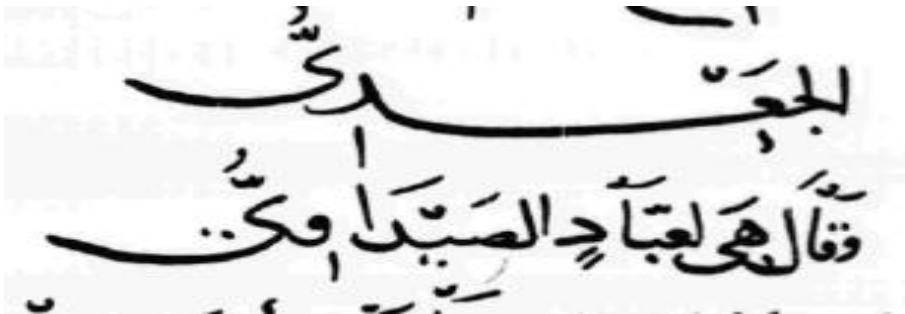 الجَعْدِىُّ
وَقَالَ هِىَ لعَبَّادٍ الصَيْدَاوِىِّ